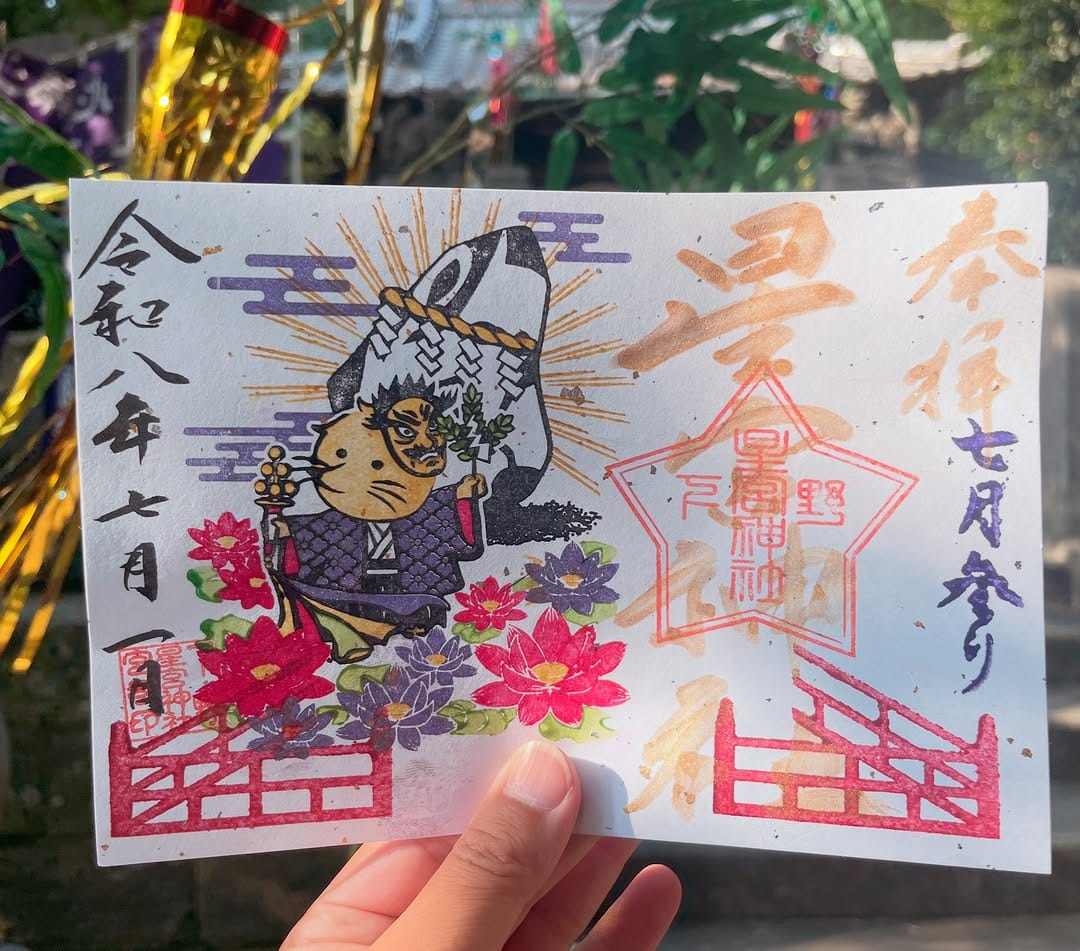 奉拝
七月参り
星宮神社
星宮神社
令和八年七月一日
星宮神社
宮司印